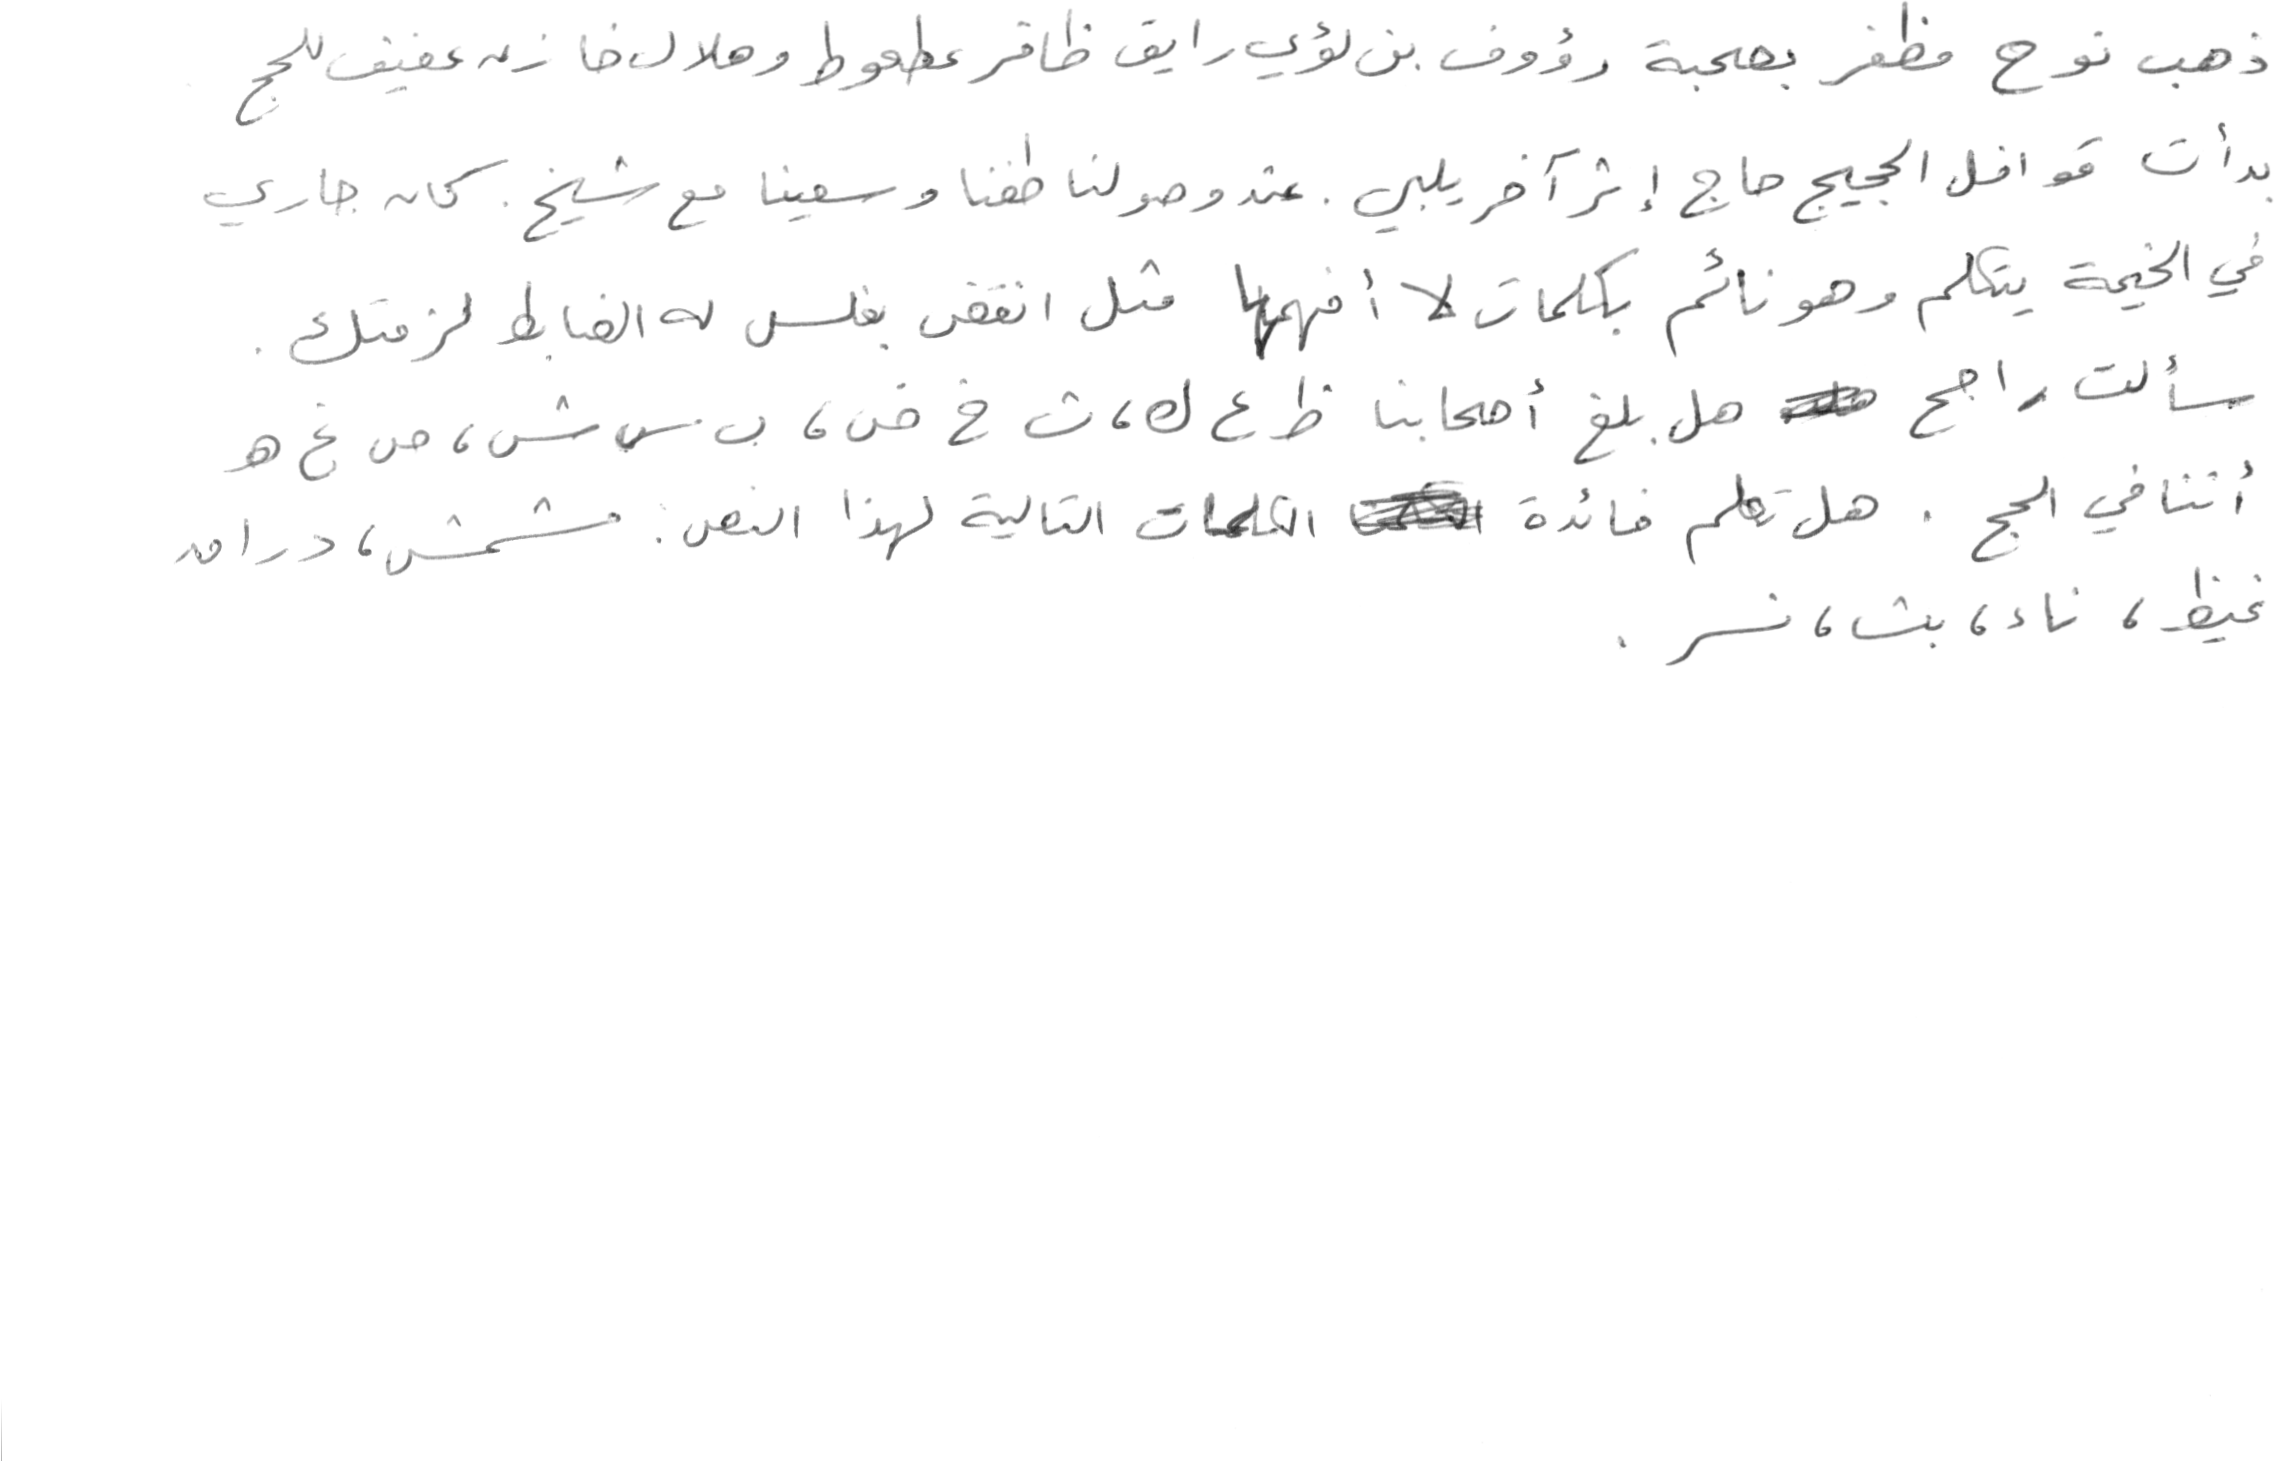 ذهب نوح مظفر بصحبة رؤوف بن لؤي رايق ظافر عطعوط وهلال خازن عفيف للحج
بدأت قوافل الحجيج حاج إثر آخر يلبي. عند وصولنا طفنا وسعينا مع شيخ. كان جاري
في الخيمة يتكلم وهو نائم بكلمات لا أفهمها مثل انقض بغلس له الضابط لزمتك.
سألت راجح هل بلغ أصحابنا ظ ع ك، ث خ ض، ب س ش، ص غ ه
أننا في الحج. هل تعلم فائدة الكلمات التالية لهذا النص: مشمش، درافه
غيظ، ناء، بث، نسر.